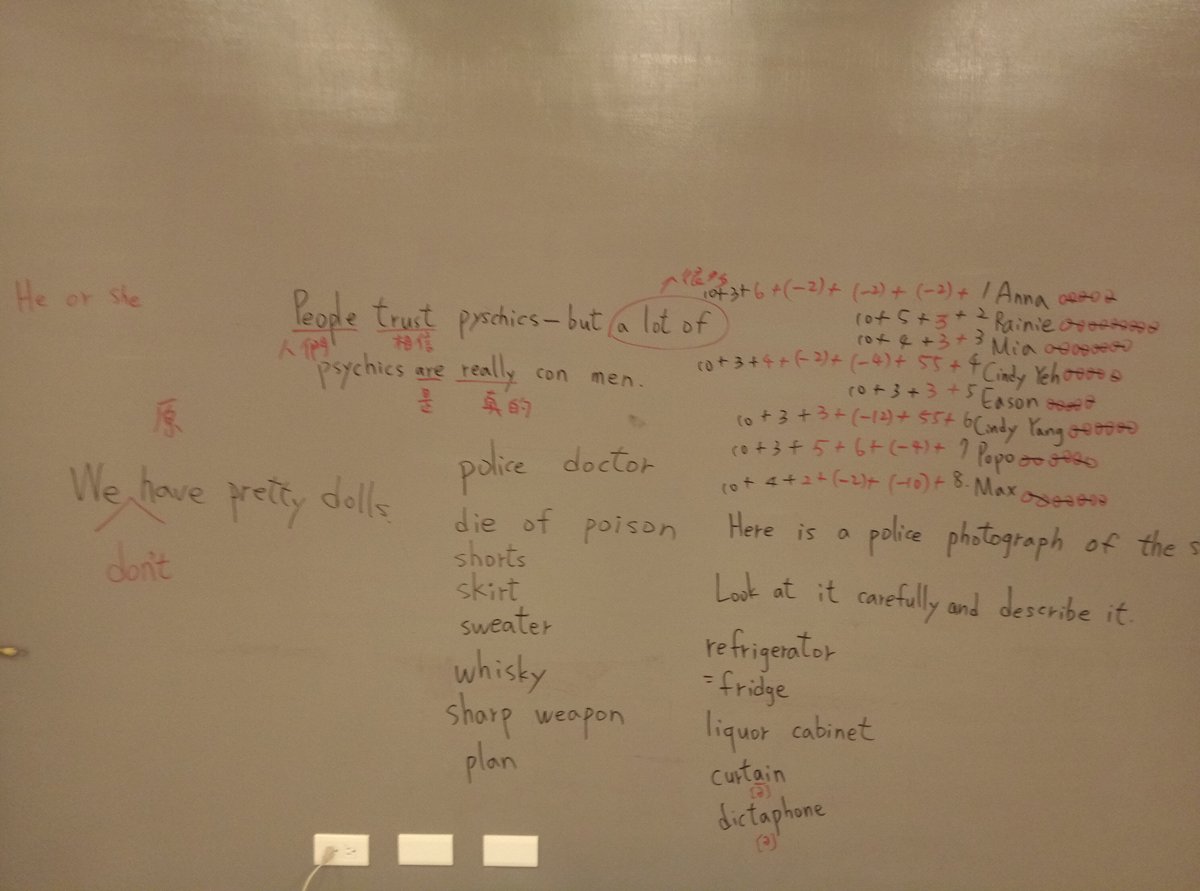 He or she
People trust pyschics-but a lot of
很多
人們 相信
psychics are really con men.
是 真的
原
We have pretty dolls.
don't
police doctor
die of poison
shorts
skirt
sweater
whisky
sharp weapon
plan
10+3+6+(-2)+(-2)+(-2)+ 1 Anna
10+5+3+ 2 Rainie
10+4+3+ 3 Mia
10+3+4+(-2)+(-4)+55+ 4 Cindy Yeh
10+3+3+ 5 Eason
10+3+3+(-12)+55+ 6 Cindy Yang
10+3+5+6+(-4)+ 7 Popo
10+4+2+(-2)+(-10)+ 8. Max
Here is a police photograph of the s
Look at it carefully and describe it.
refrigerator
=fridge
liquor cabinet
curtain
[ə]
dictaphone
[ə]